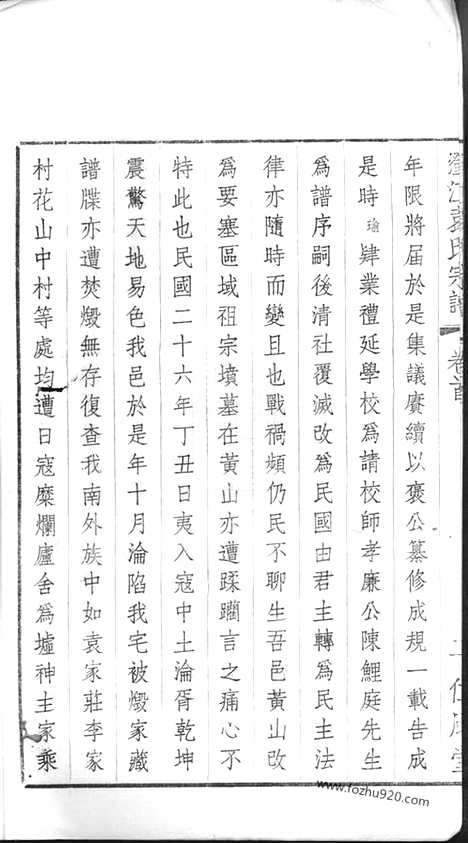 年限將屆於是集議賡續以褒公纂修成規一載告成
是時瑜肄業禮延學校爲請校師孝廉公陳鯉庭先生
爲譜序嗣後清社覆滅改爲民國由君主轉爲民主法
律亦隨時而變且也戰禍頻仍民不聊生吾邑黃山改
爲要塞區域祖宗墳墓在黃山亦遭蹂躪言之痛心不
特此也民國二十六年丁丑日夷入寇中土淪胥乾坤
震驚天地易色我邑於是年十月淪陷我宅被燬家藏
譜牒亦遭焚燬無存復查我南外族中如袁家莊李家
村花山中村等處均遭日寇糜爛廬舍爲墟神主家乘
袁氏宗譜 卷首
www.fozhu920.com